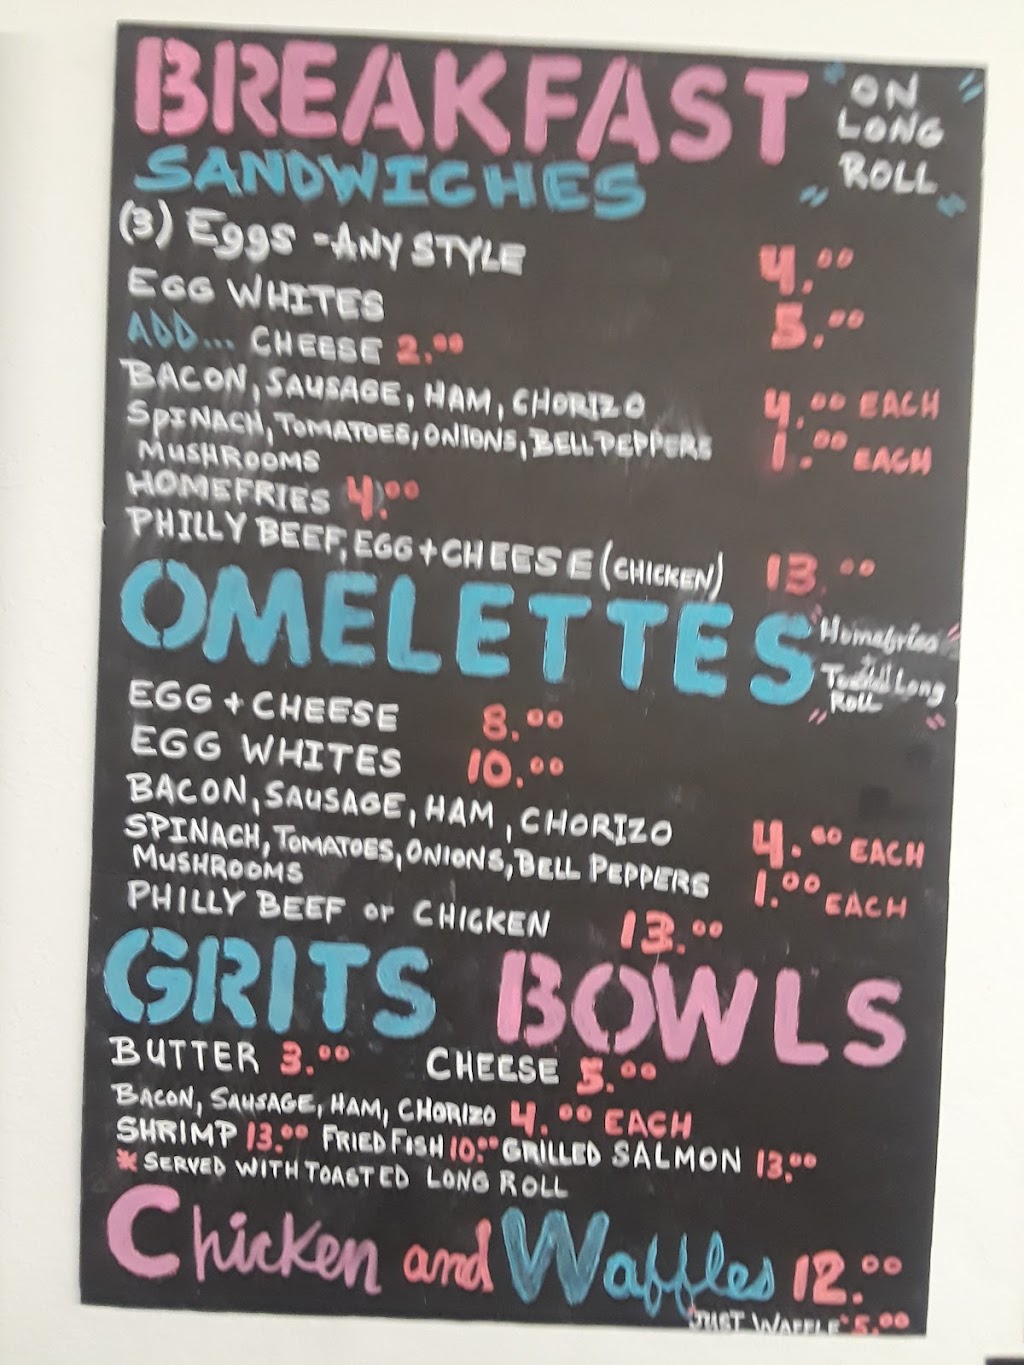 BREAKFAST
"ON
LONG
ROLL"
SANDWICHES
(3) Eggs - ANY STYLE 4.00
EGG WHITES 5.00
ADD... CHEESE 2.00
BACON, SAUSAGE, HAM, CHORIZO 4.00 EACH
SPINACH, TOMATOES, ONIONS, BELL PEPPERS 1.00 EACH
MUSHROOMS
HOMEFRIES 4.00
PHILLY BEEF, EGG + CHEESE (CHICKEN) 13.00
OMELETTES
"Homefries
+
Toasted Long
Roll"
EGG + CHEESE 8.00
EGG WHITES 10.00
BACON, SAUSAGE, HAM, CHORIZO 4.00 EACH
SPINACH, TOMATOES, ONIONS, BELL PEPPERS 1.00 EACH
MUSHROOMS
PHILLY BEEF or CHICKEN 13.00
GRITS BOWLS
BUTTER 3.00 CHEESE 5.00
BACON, SAUSAGE, HAM, CHORIZO 4.00 EACH
SHRIMP 13.00 FRIED FISH 10.00 GRILLED SALMON 13.00
*SERVED WITH TOASTED LONG ROLL
Chicken and Waffles 12.00
"JUST WAFFLE" 5.00